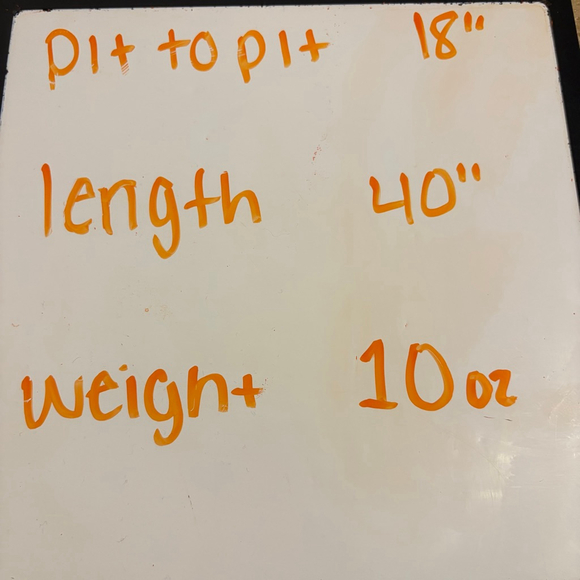 pit to pit 18"
length 40"
weight 10 oz